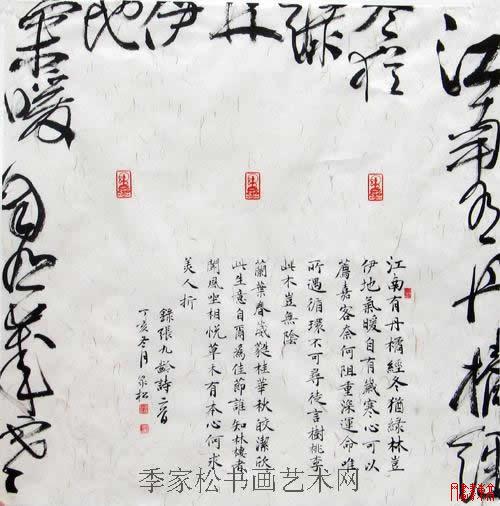 江南有丹橘經
冬猶
綠
林
伊
地
氣暖自有歲
江南有丹橘經冬猶綠林豈
伊地氣暖自有歲寒心可以
薦嘉客奈何阻重深運命唯
所遇循環不可尋徒言樹桃李
此木豈無陰
蘭葉春葳蕤桂華秋皎潔欣
此生意自爾為佳節誰知林棲者
聞風坐相悅草木有本心何求
美人折
錄張九齡詩二首
丁亥冬月家松
季家松书画艺术网